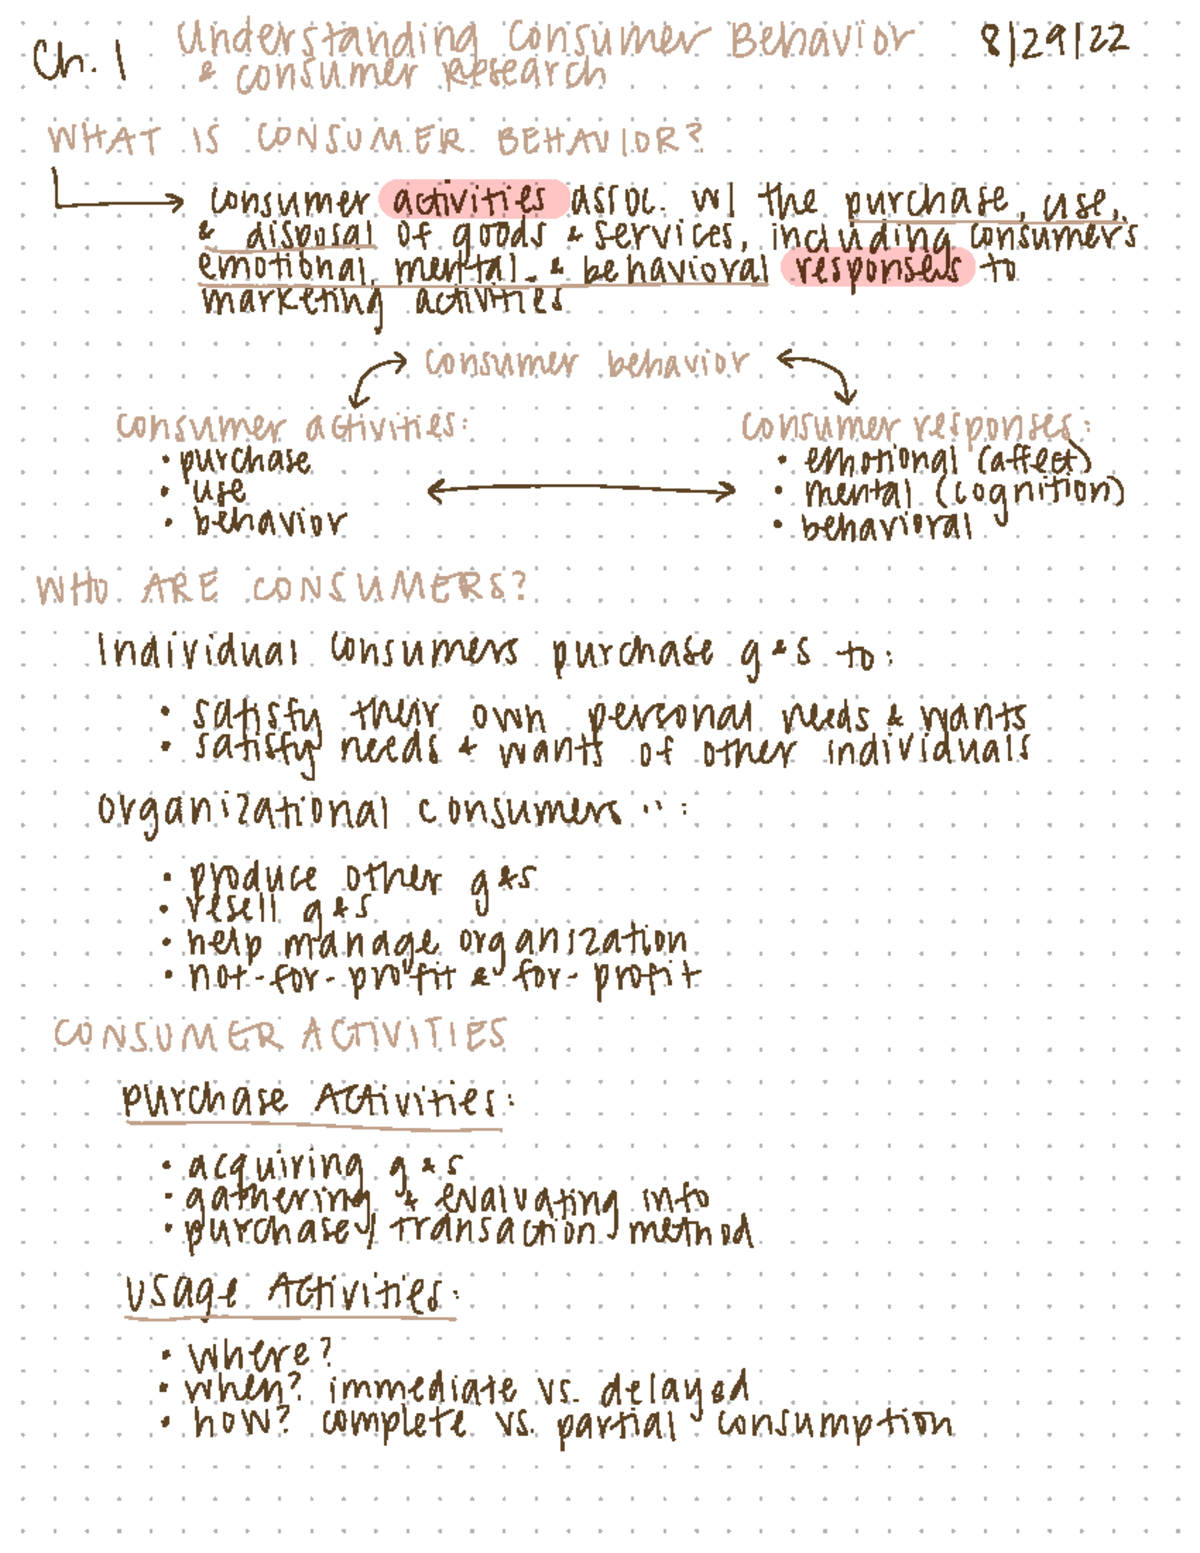 Ch. 1 Understanding Consumer Behavior 8/29/22
& consumer Research
WHAT IS CONSUMER BEHAVIOR?
consumer activities assoc. w/ the purchase, use,
& disposal of goods & services, including consumer's
emotional, mental, & behavioral responses to
marketing activities
consumer behavior
consumer activities:
• purchase
• use
• behavior
consumer responses:
• emotional (affect)
• mental (cognition)
• behavioral
WHO ARE CONSUMERS?
Individual consumers purchase g&s to:
• satisfy their own personal needs & wants
• satisfy needs & wants of other individuals
organizational consumers " :
• produce other g&s
• resell g&s
• help manage organization
• not-for-profit & for-profit
CONSUMER ACTIVITIES
purchase Activities:
• acquiring g&s
• gathering & evaluating info
• purchase/transaction method
usage Activities:
• where?
• when? immediate vs. delayed
• how? complete vs. partial consumption